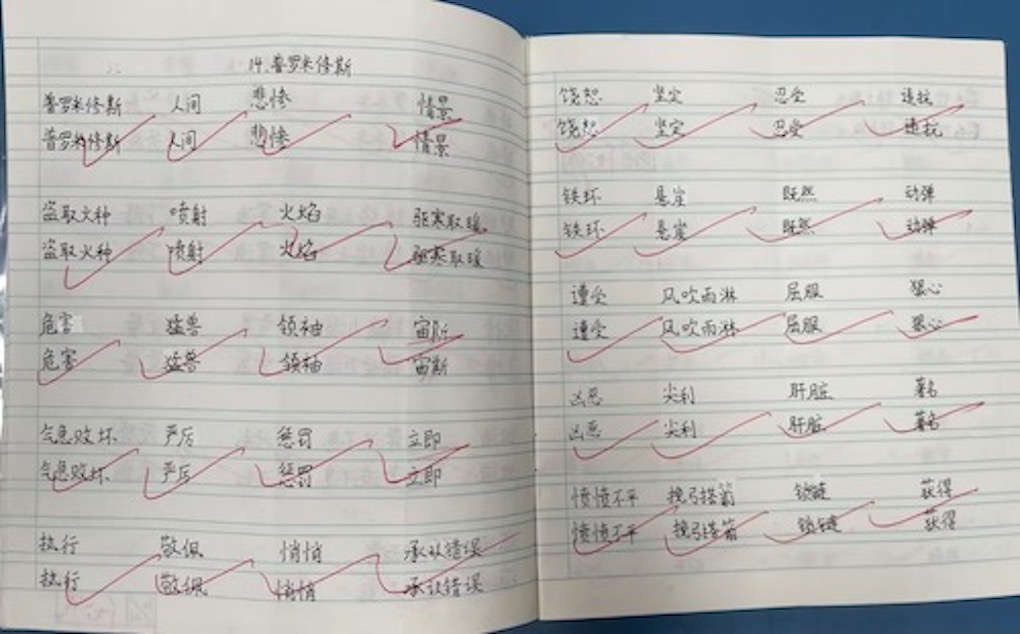 14.普罗米修斯
普罗米修斯 人间 悲惨 情景
普罗米修斯 人间 悲惨 情景
盗取火种 喷射 火焰 驱寒取暖
盗取火种 喷射 火焰 驱寒取暖
危害 猛兽 领袖 宙斯
危害 猛兽 领袖 宙斯
气急败坏 严厉 惩罚 立即
气急败坏 严厉 惩罚 立即
执行 敬佩 悄悄 承认错误
执行 敬佩 悄悄 承认错误
饶恕 坚定 忍受 违抗
饶恕 坚定 忍受 违抗
铁环 悬崖 既然 动弹
铁环 悬崖 既然 动弹
遭受 风吹雨淋 屈服 狠心
遭受 风吹雨淋 屈服 狠心
凶恶 尖利 肝脏 著名
凶恶 尖利 肝脏 著名
愤愤不平 挽弓搭箭 锁链 获得
愤愤不平 挽弓搭箭 锁链 获得